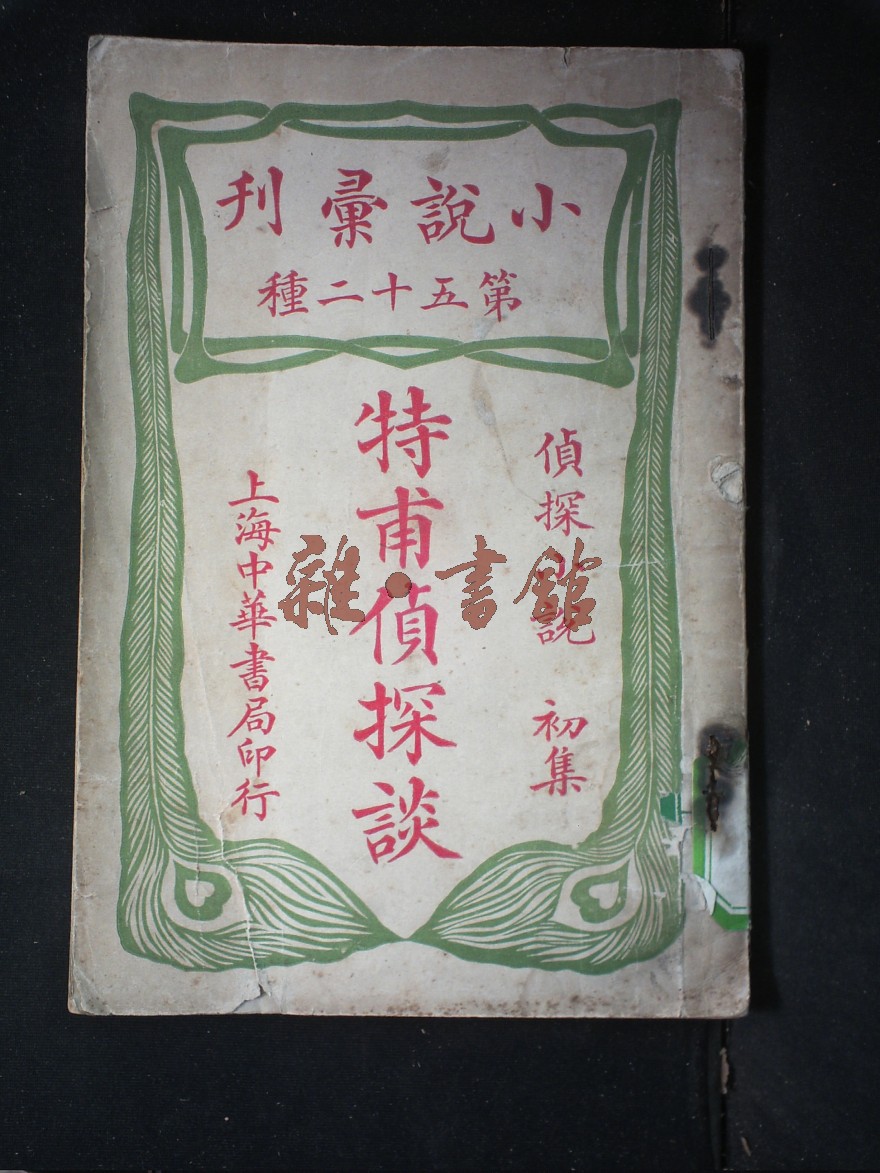 小說彙刊
第五十二種
偵探小說 初集
特甫偵探談
上海中華書局印行
雜·書館